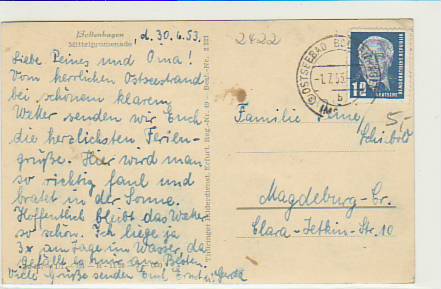 Boltenhagen
Mittelpromenade
d. 30.6.53.
Liebe Peines und Oma!
Vom herrlichen Ostseestrand
bei schönem klarem
Wetter senden wir Euch
die herzlichsten Ferien-
grüße. Hier wird man
so richtig faul und
bratet in der Sonne.
Hoffentlich bleibt das Wetter
so schön. Ich liege ja
3x am Tage im Wasser, da
gefällt es mir am Besten.
Viele Grüße senden Euch Ernst u. Gerda
2422
OSTSEEBAD
-1.7.53
b
12
DEUTSCHE
DEMOKRATISCHE REPUBLIK
5,-
Familie
Magdeburg-Cr.
Clara-Zetkin-Str. 10